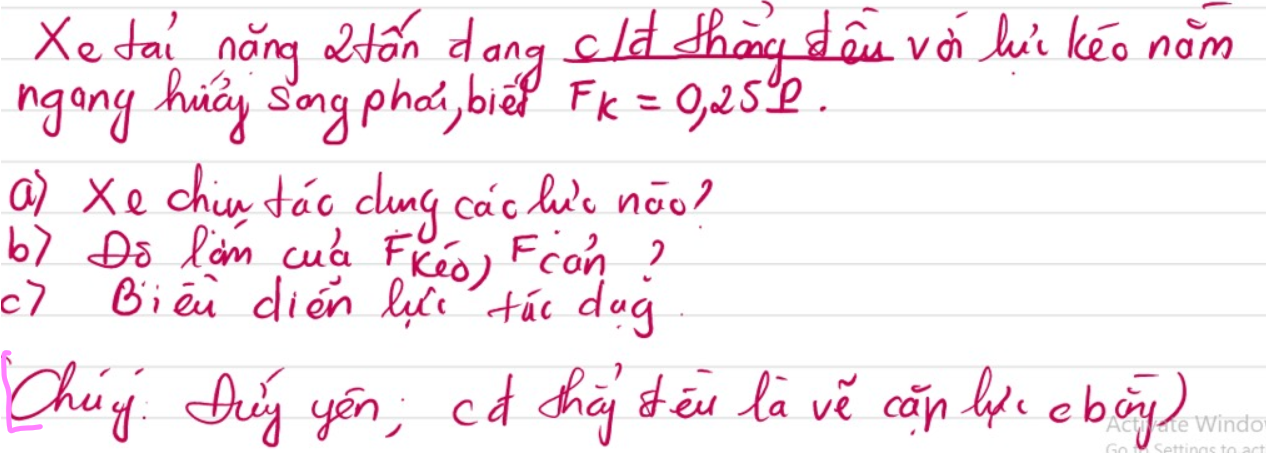 Xe tải nặng 2 tấn đang c/đ thẳng đều với lực kéo nằm
ngang hướng sang phải, biết Fk = 0,25P.
a) Xe chịu tác dụng các lực nào?
b) Độ lớn của Fkéo, Fcản ?
c) Biểu diễn lực tác dụg.
Chú ý: Đứg yên; cđ thẳg đều là vẽ cặp lực cbằg)
Activate Windo
Go to Settings to act